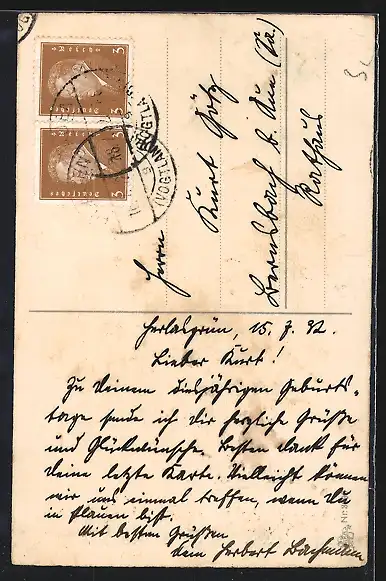 Deutsches Reich 3
Deutsches Reich 3
(VOGTLA
(VOGTLAND)
Herrn
Kurt Götz
Bernsbach b. Aue (Sa.)
Rathaus
Herlasgrün, 15. 7. 32.
Lieber Kurt!
Zu Deinem diesjährigen Geburts-
tage sende ich dir herzliche Grüße
und Glückwünsche. Besten Dank für
Deine letzte Karte. Vielleicht können
wir uns einmal treffen, wenn Du
in Plauen bist.
Mit besten Grüßen
Dein Herbert Bachmann